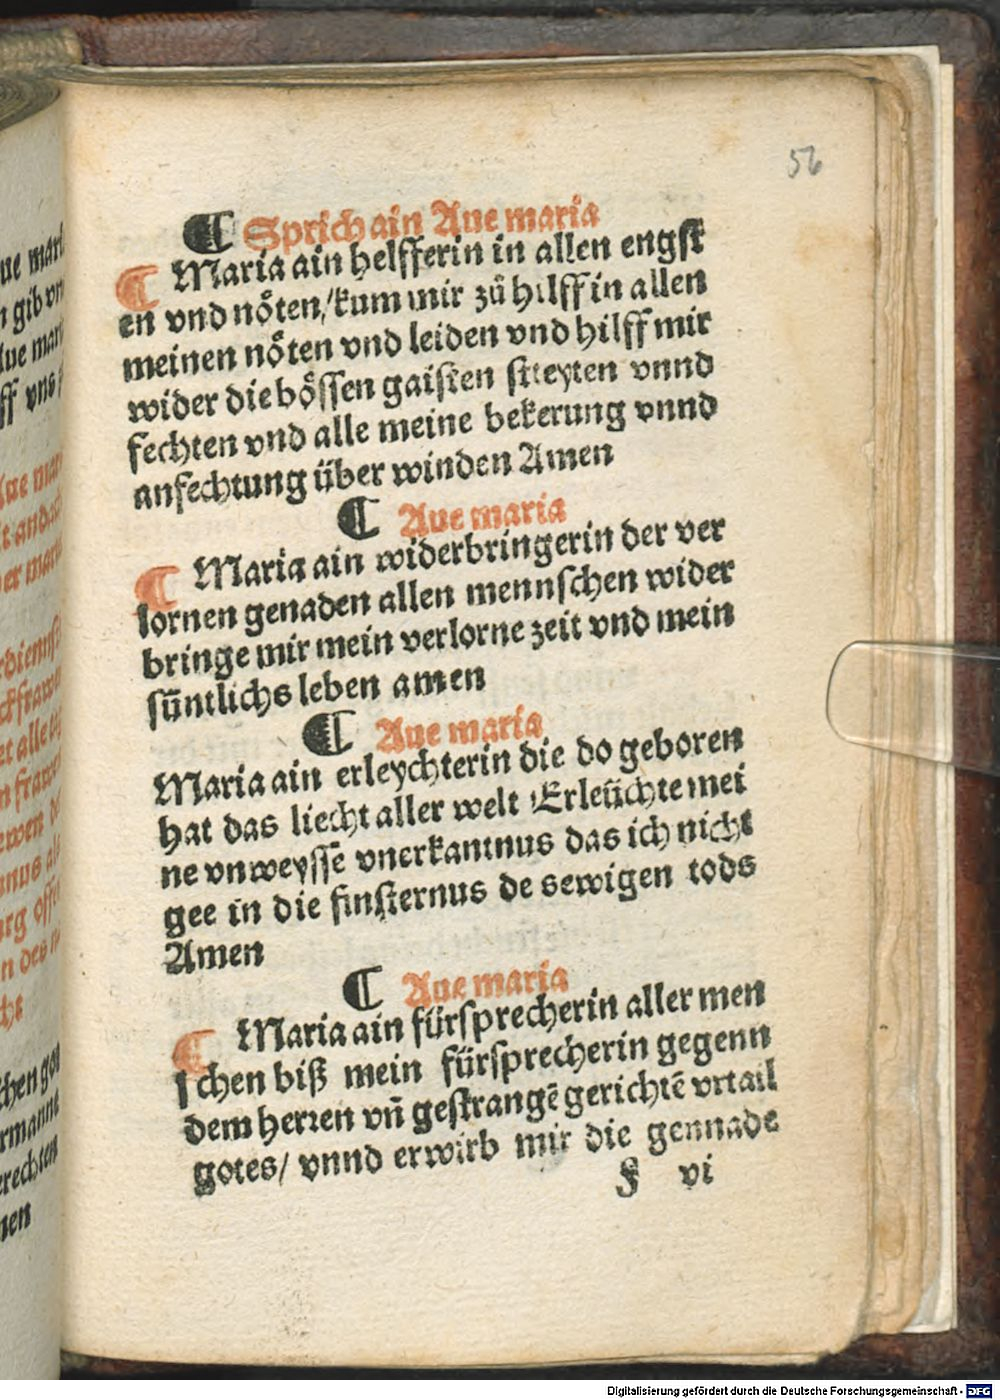 56
¶ Sprich ain Aue maria
¶ Maria ain helfferin in allen engst
en vnd nöten/kum mir zů hilff in allen
meinen nöten vnd leiden vnd hilff mir
wider die bössen gaisten streyten vnnd
fechten vnd alle meine bekerung vnnd
anfechtung über winden Amen
¶ Aue maria
¶ Maria ain widerbringerin der ver
lornen genaden allen mennschen wider
bringe mir mein verlorne zeit vnd mein
süntlichs leben amen
¶ Aue maria
Maria ain erleychterin die do geboren
hat das liecht aller welt Erleüchte mei
ne vnweyssē vnerkantnus das ich nicht
gee in die finsternus de sewigen tods
Amen
¶ Aue maria
¶ Maria ain fürsprecherin aller men
schen biß mein fürsprecherin gegenn
dem herren vñ gestrangē gerichtē vrtail
gotes/ vnnd erwirb mir die gennade
F vi
Digitalisierung gefördert durch die Deutsche Forschungsgemeinschaft - DFG